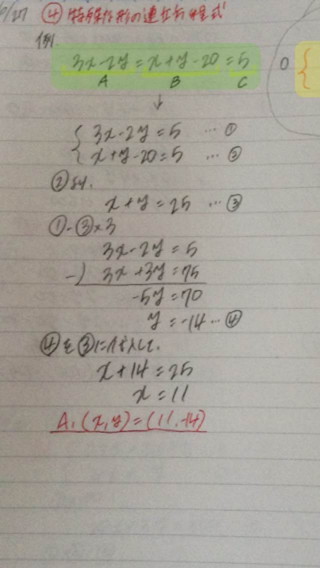 ④ 特殊な形の連立方程式
例
3x-2y=x+y-20=5
A B C
↓
{ 3x-2y=5 … ①
x+y-20=5 … ②
②より、
x+y=25 … ③
①-③×3
3x-2y=5
-) 3x+3y=75
-5y=70
y=-14 … ④
④を③に代入して、
x+14=25
x=11
A,(x,y)=(11,-14)